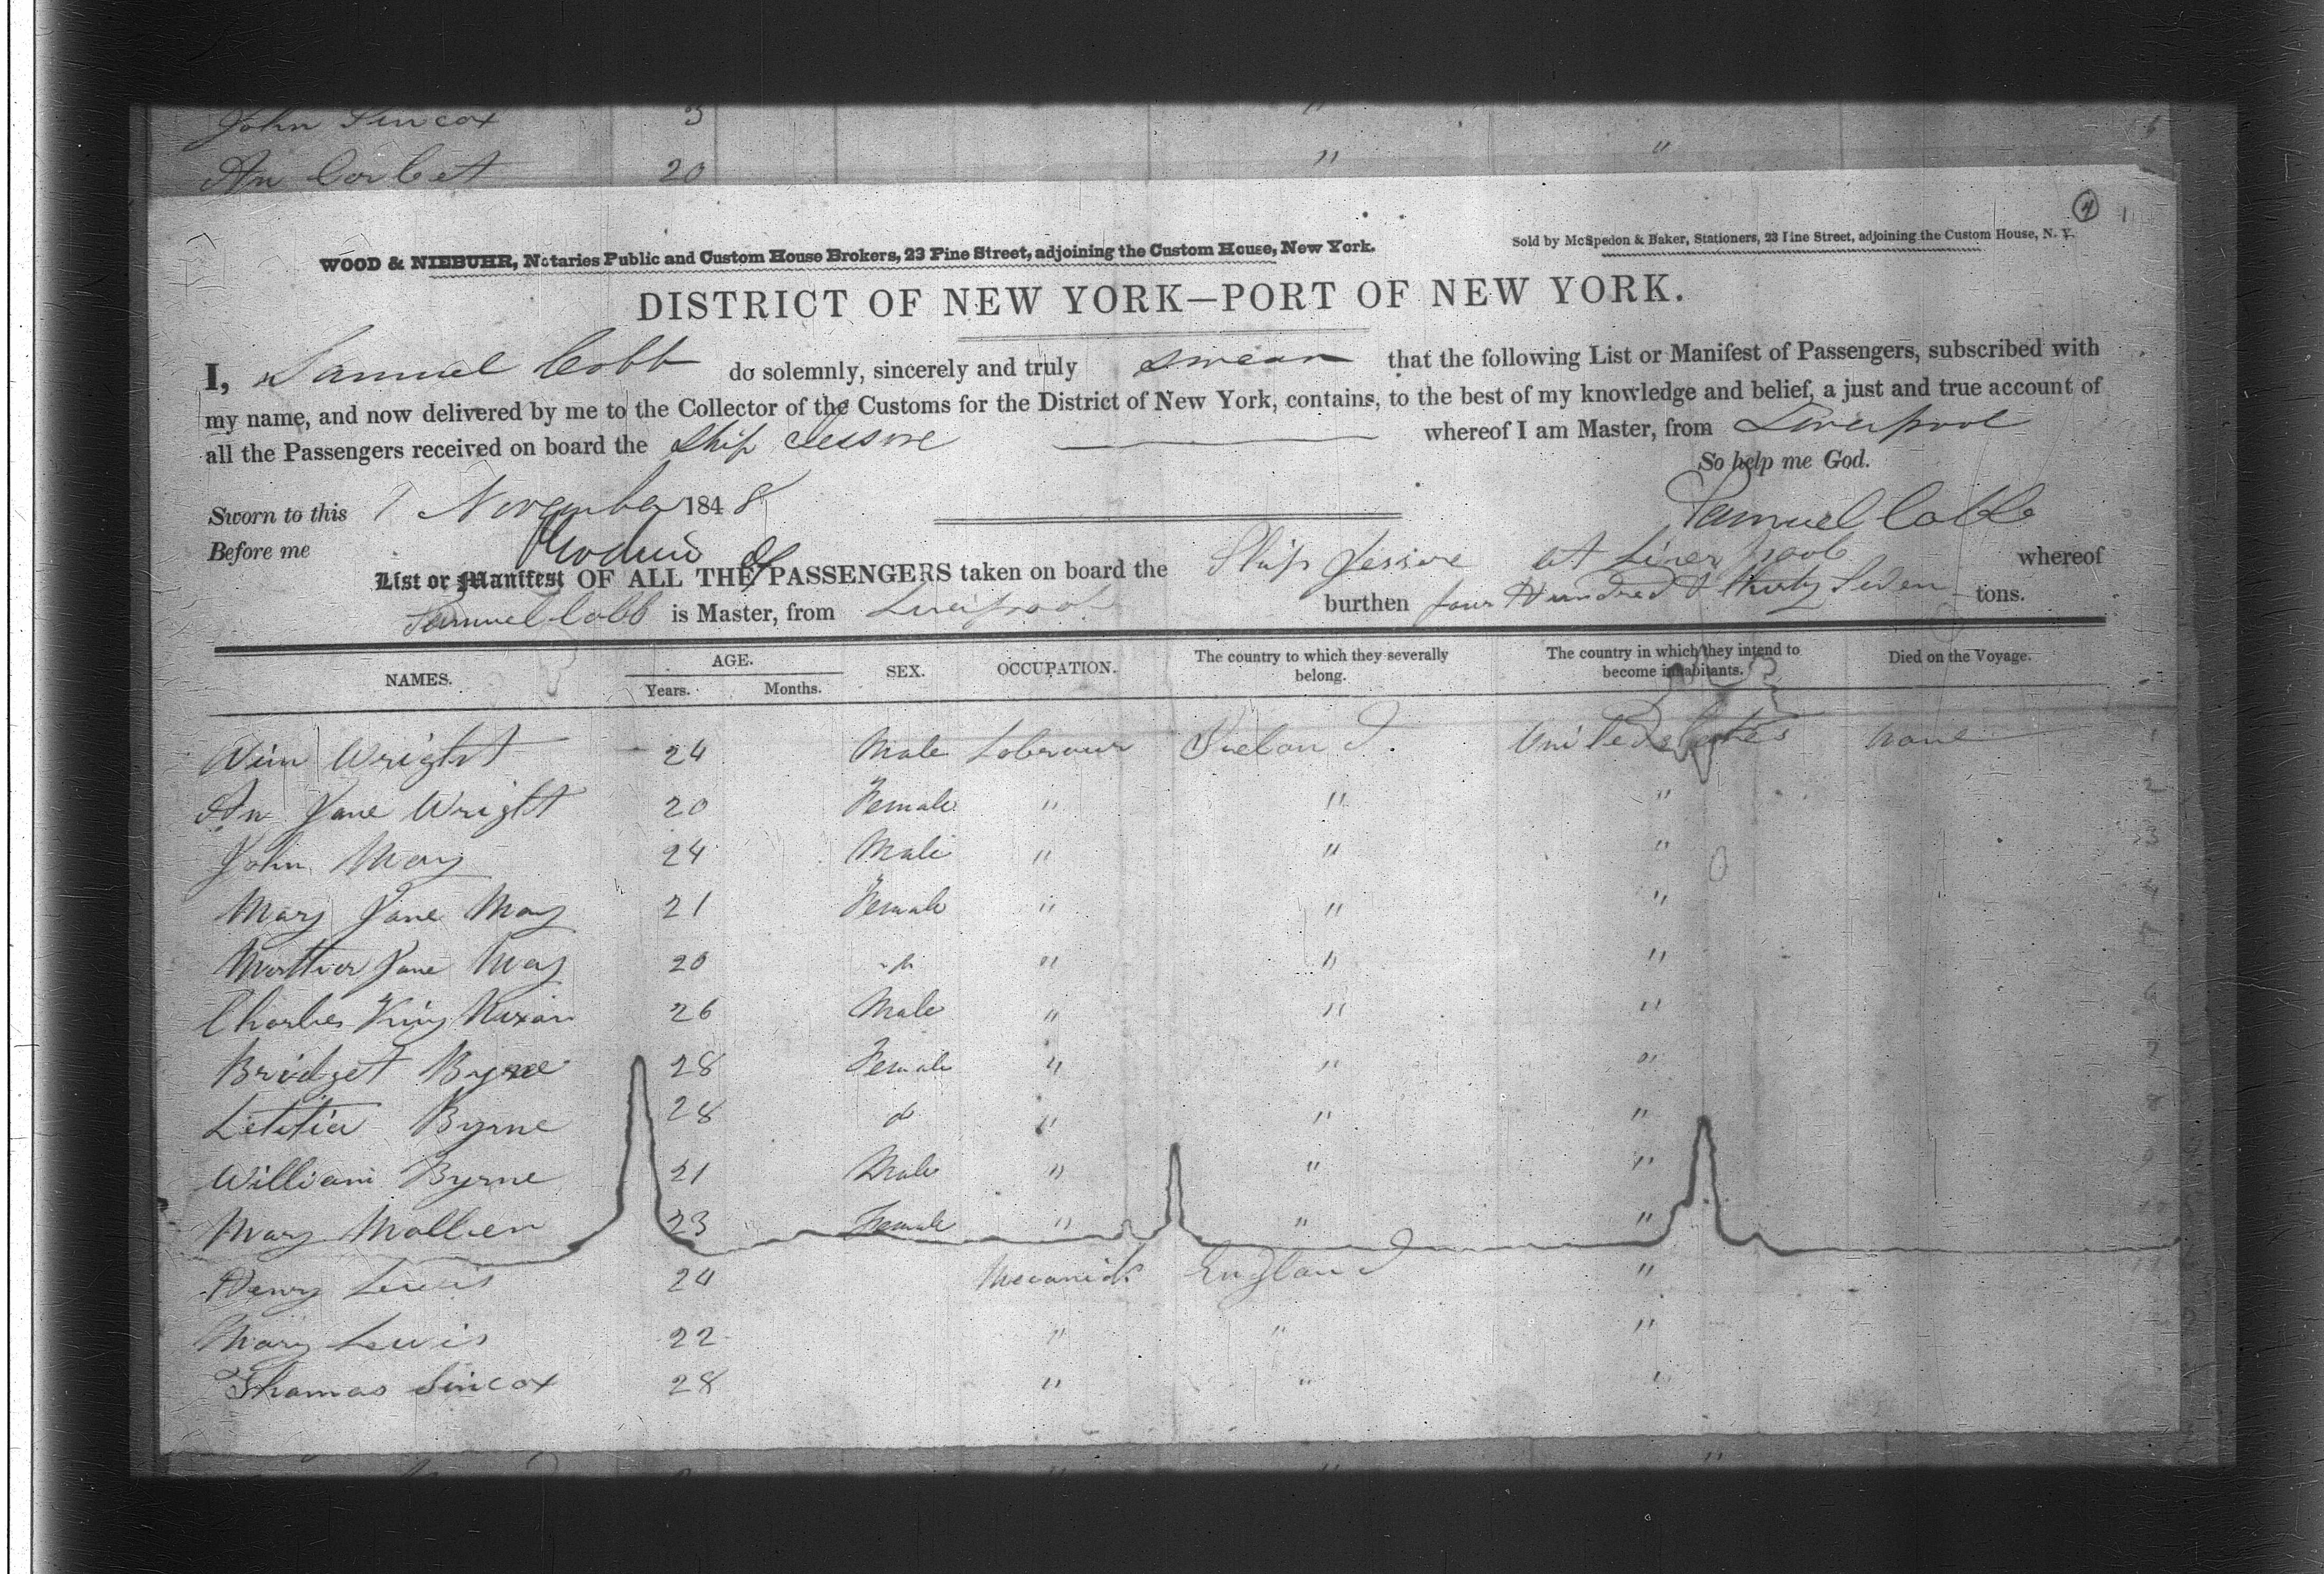 John Sincox 3 "
An Corbet 20 " "
4
WOOD & NIEBUHR, Notaries Public and Custom House Brokers, 23 Pine Street, adjoining the Custom House, New York.
Sold by McSpedon & Baker, Stationers, 23 Pine Street, adjoining the Custom House, N. Y.
DISTRICT OF NEW YORK—PORT OF NEW YORK.
I, Samuel Cobb do solemnly, sincerely and truly swear that the following List or Manifest of Passengers, subscribed with
my name, and now delivered by me to the Collector of the Customs for the District of New York, contains, to the best of my knowledge and belief, a just and true account of
all the Passengers received on board the Ship Jessore whereof I am Master, from Liverpool
So help me God.
Sworn to this 1 November 1848 Samuel Cobb
Before me
List or Manifest OF ALL THE PASSENGERS taken on board the Ship Jessore at Liverpool whereof
Samuel Cobb is Master, from Liverpool burthen four Hundred & thirty Seven tons.
NAMES. AGE. Years. Months. SEX. OCCUPATION. The country to which they severally belong. The country in which they intend to become inhabitants. Died on the Voyage.
Wim Wright 24 Male Labrour Ireland. United States None 1
An Jane Wright 20 Female " " " 2
John May 24 Male " " " 3
Mary Jane May 21 Female " " " 4
Jane May 20 " " " "
Charles King Nixon 26 Male " " " 6
Bridget Byrne 28 Female " " " 7
Letitia Byrne 28 do " " " 8
William Byrne 21 Male " " " 9
Mary Mollien 23 Female " " " 10
Henry Lewis 24 Mecanick England " 11
Mary Lewis 22 " " "
Thomas Sincox 28 " " "